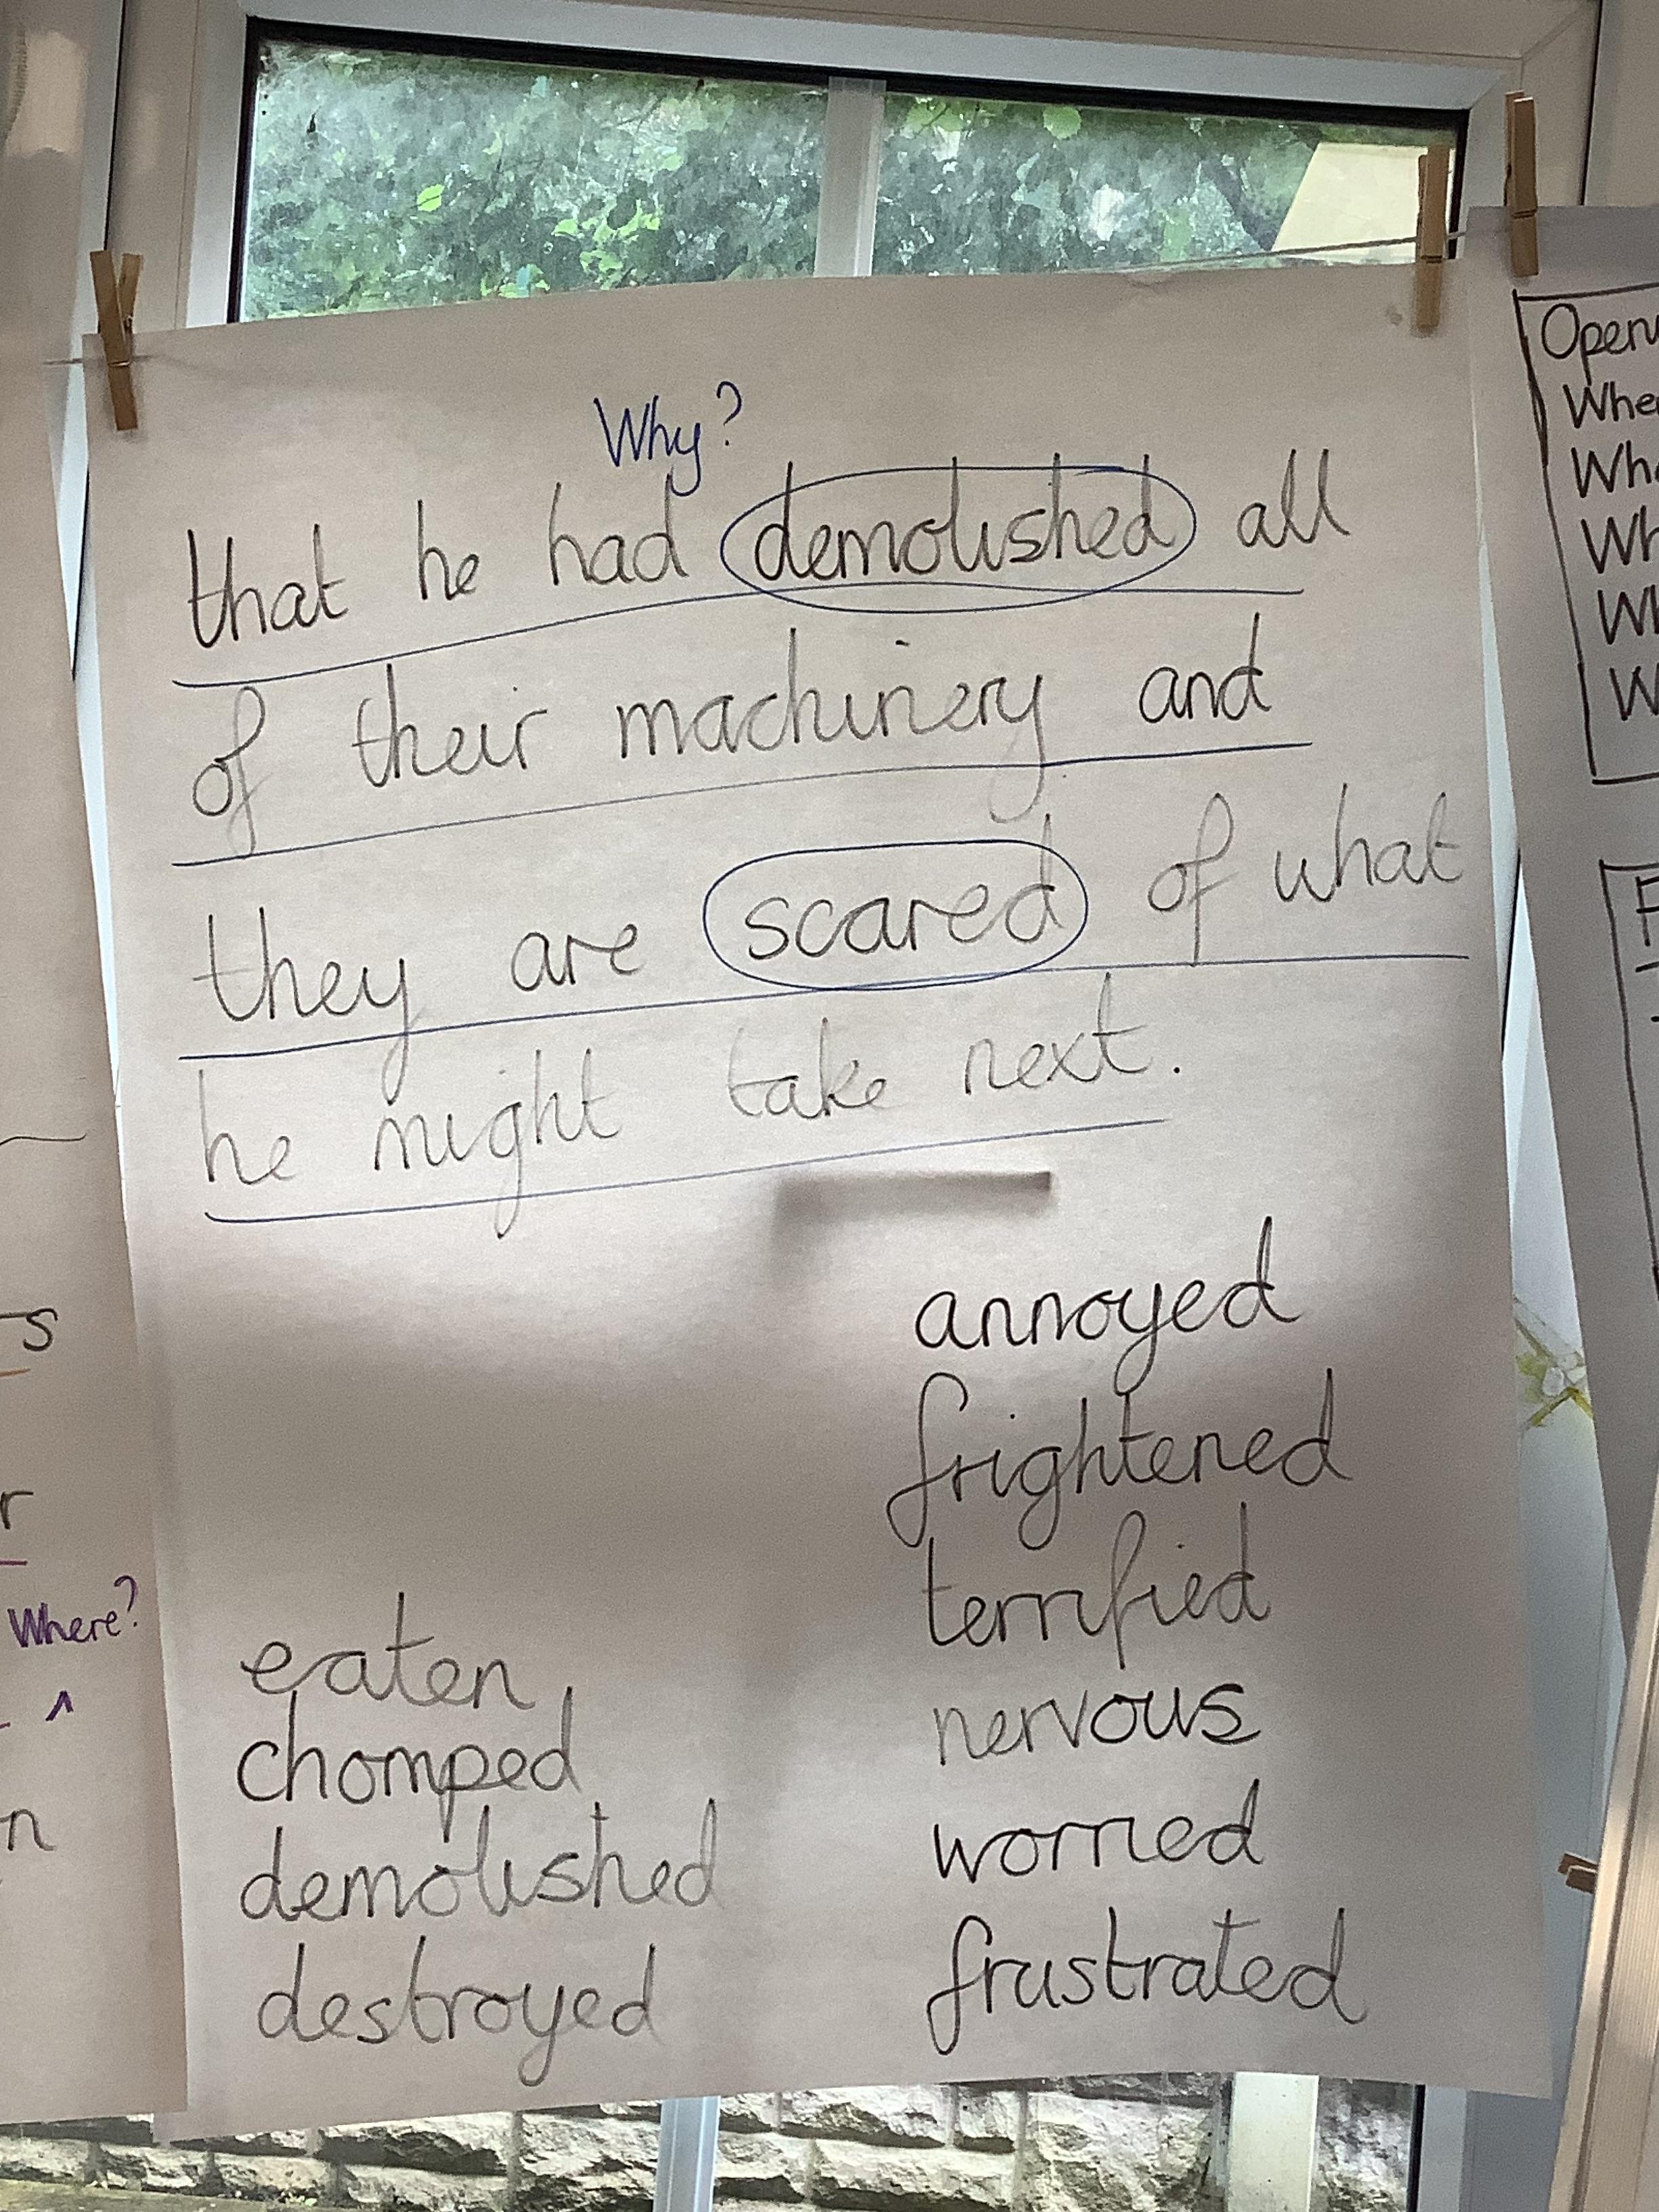 Why?
that he had demolished all
of their machinery and
they are scared of what
he might take next.
annoyed
frightened
terrified
nervous
worried
frustrated
eaten
chomped
demolished
destroyed
Where?